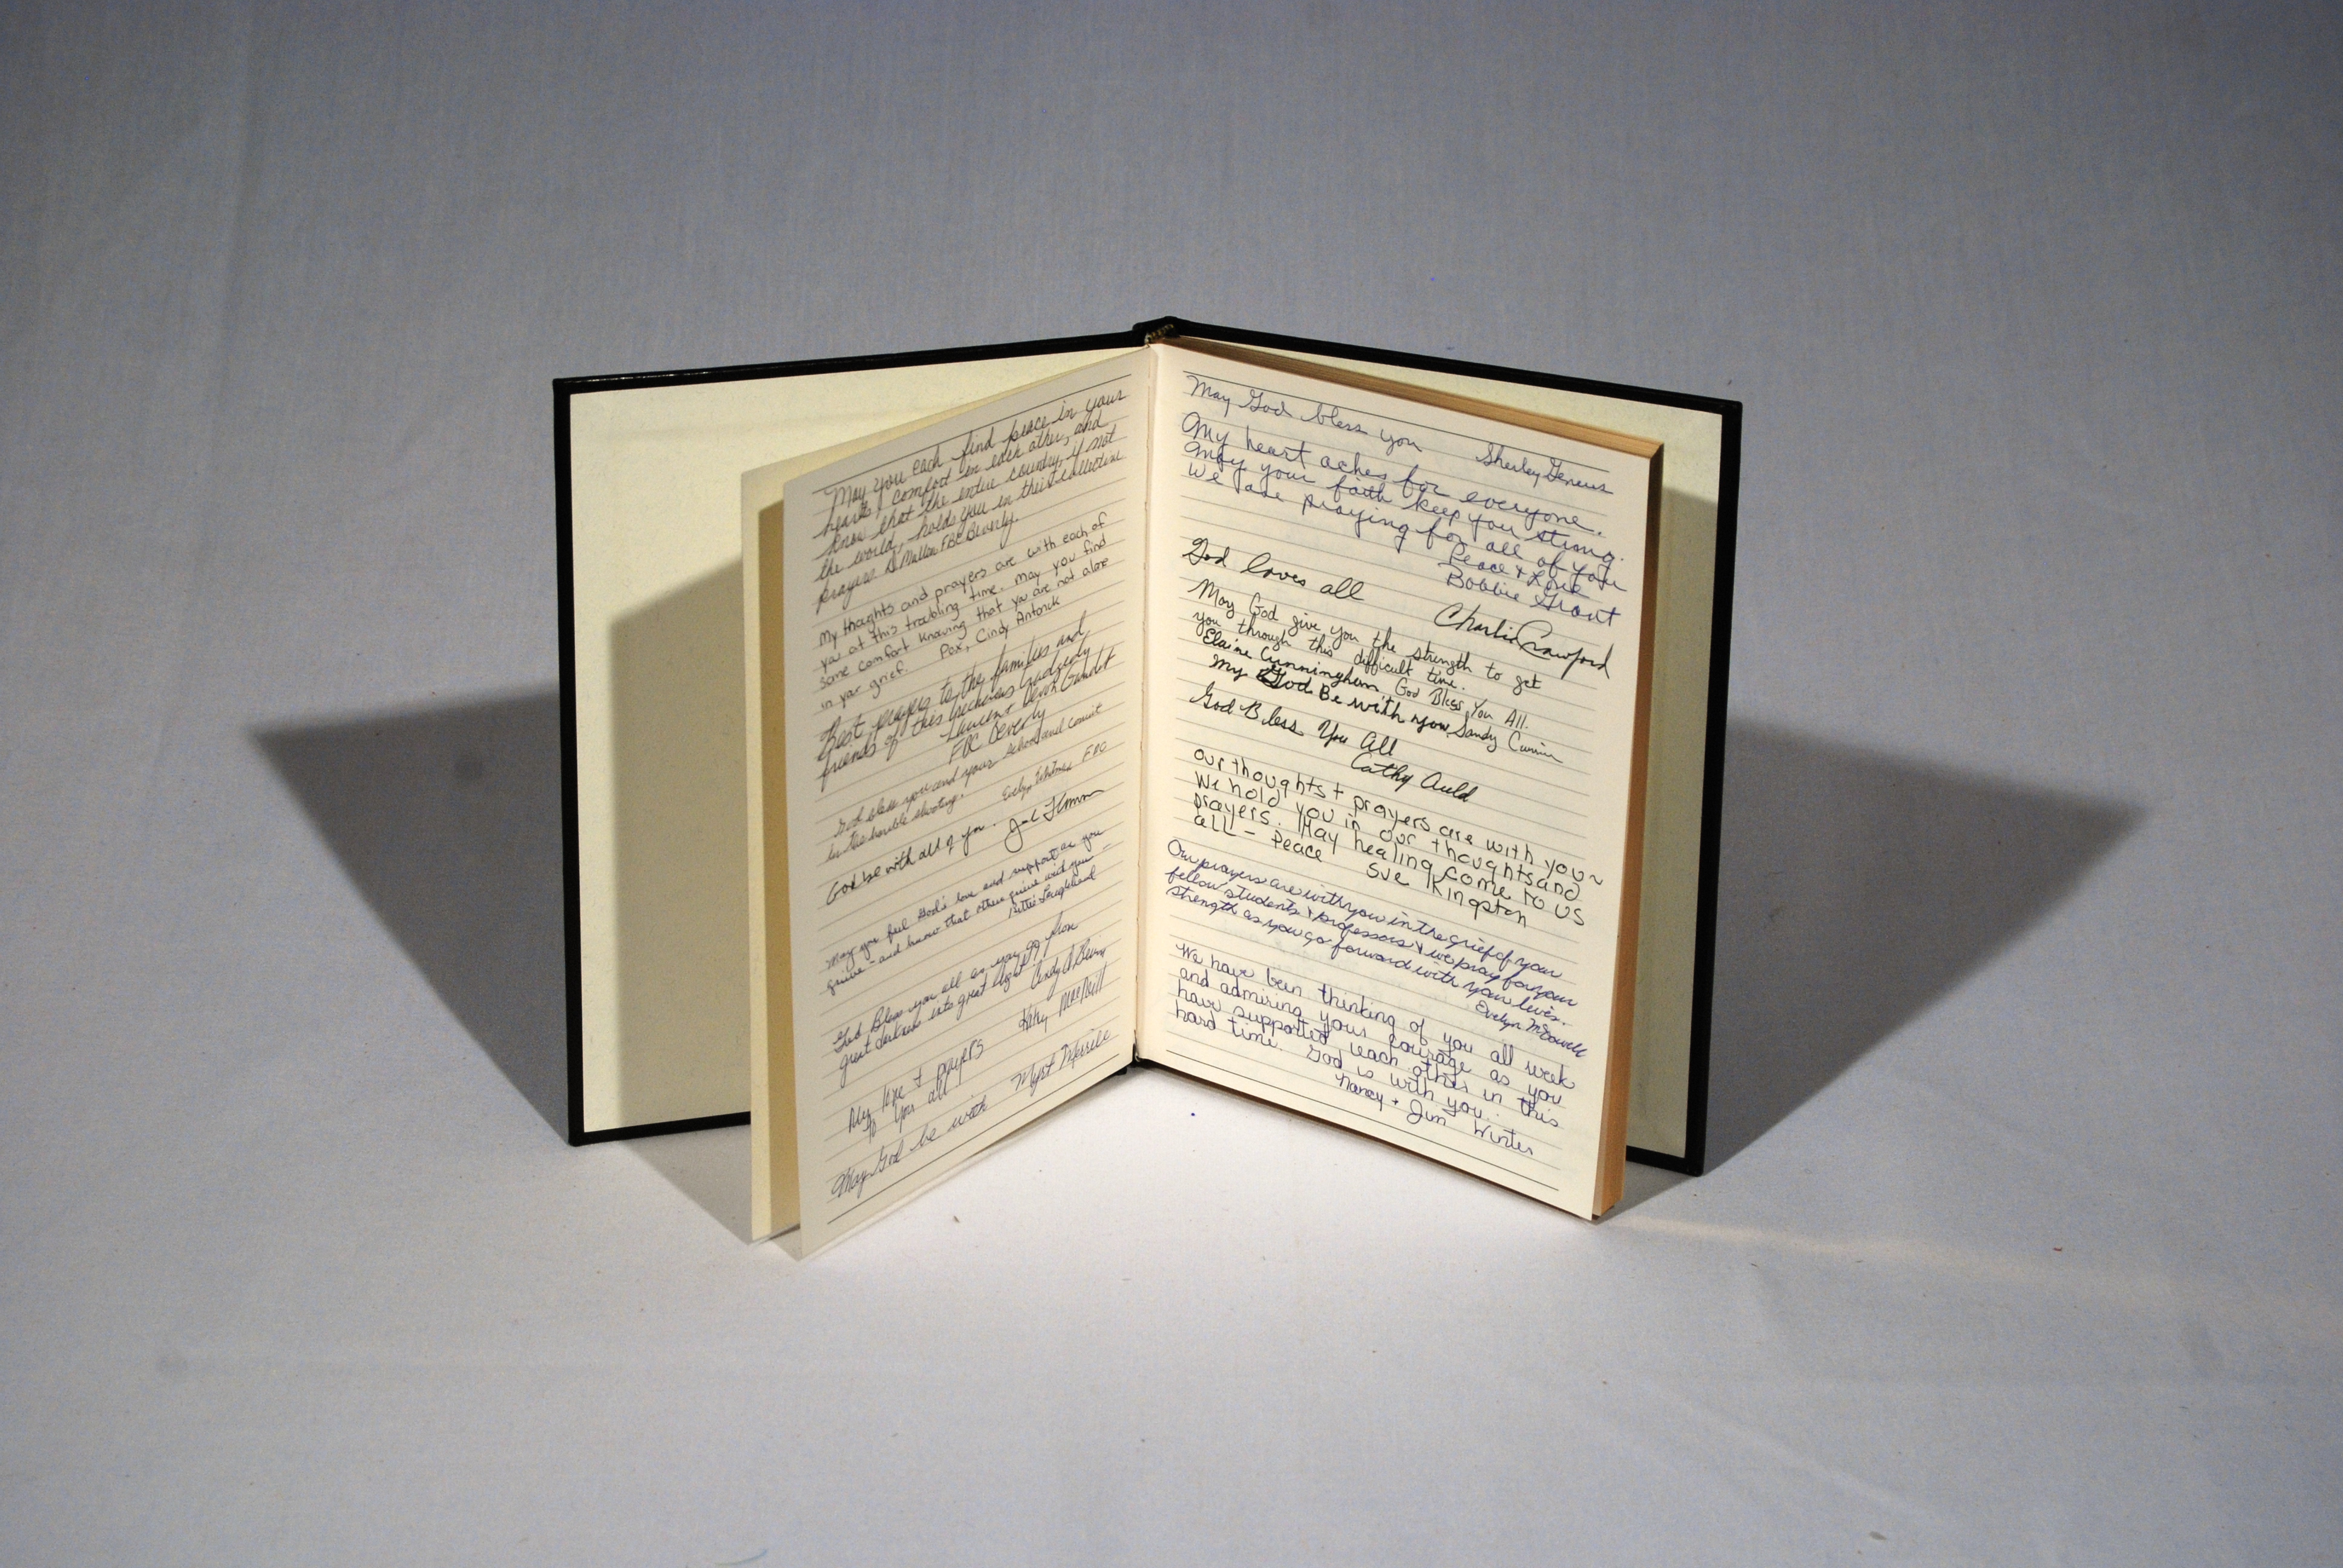 May you each find peace in your
hearts, comfort in each other, and
know that the entire country, if not
the world, holds you in their collective
prayers. FBC Beverly.
My thoughts and prayers are with each of
you at this troubling time. May you find
some comfort knowing that you are not alone
in your grief. Pax, Cindy
Best prayers to the families and
friends of this grievous tragedy
FBC Beverly
God bless you and your school and
in the horrible shooting. Evelyn FBC
God be with all of you.
May you feel God's love and support as you
grieve - and know that others grieve with you -
God Bless you all as you go from
great darkness into great light
Kitty
My love + prayers
to you all
May God be with
May God bless you
My heart aches for everyone.
May your faith keep you strong.
We are praying for all of you
Peace & Love
Bobbie Grant
God loves all
Charlie Crawford
May God give you the strength to get
you through this difficult time.
Elaine Cunningham God Bless You All.
My God Be with you Sandy
God Bless You All
Cathy Auld
Our thoughts + prayers are with you~
We hold you in our thoughts and
prayers. May healing come to us
all - Peace Sue Kingston
Our prayers are with you in the grief of your
fellow students & professors & we pray for your
strength as you go forward with your lives.
Evelyn McDowell
We have been thinking of you all week
and admiring your courage as you
have supported each other in this
hard time. God is with you.
Nancy + Jim Winter